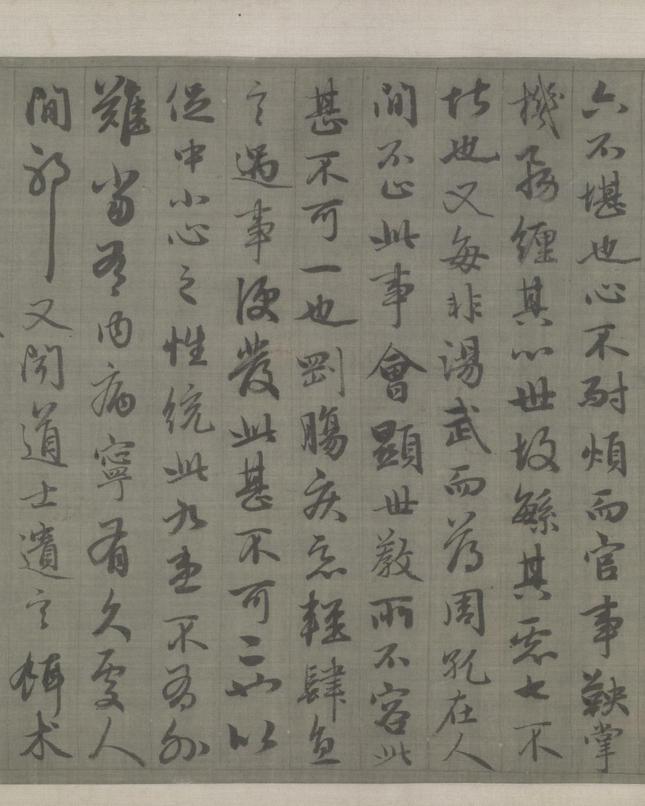 六不堪也心不耐煩而官事鞅掌
機務纏其心世故繁其慮七不
堪也又每非湯武而薄周孔在人
間不止此事會顯世教所不容此
甚不可一也剛腸疾惡輕肆直
言遇事便發此甚不可二也以
促中小心之性統此九患不有外
難當有內病寧有久處人
間邪又聞道士遺言餌术